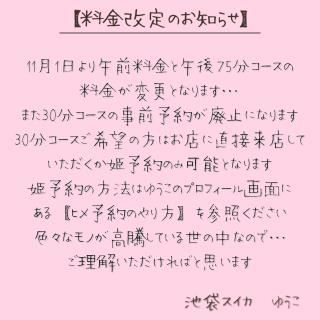 【料金改定のお知らせ】
11月1日より午前料金と午後75分コースの
料金が変更となります…
また30分コースの事前予約が廃止になります
30分コースご希望の方はお店に直接来店して
いただくか姫予約のみ可能となります
姫予約の方法はゆうこのプロフィール画面に
ある〖ヒメ予約のやり方〗を参照ください
色々なモノが高騰している世の中なので…
ご理解いただければと思います
池袋スイカ ゆうこ